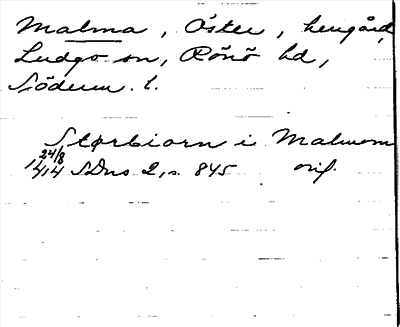 Malma, Öster, herrgård,
Ludgo sn, Rönö hd,
Söderm. l.
Størbiorn i Malmom
24/8 1414 SDns 2, s. 845 orig.